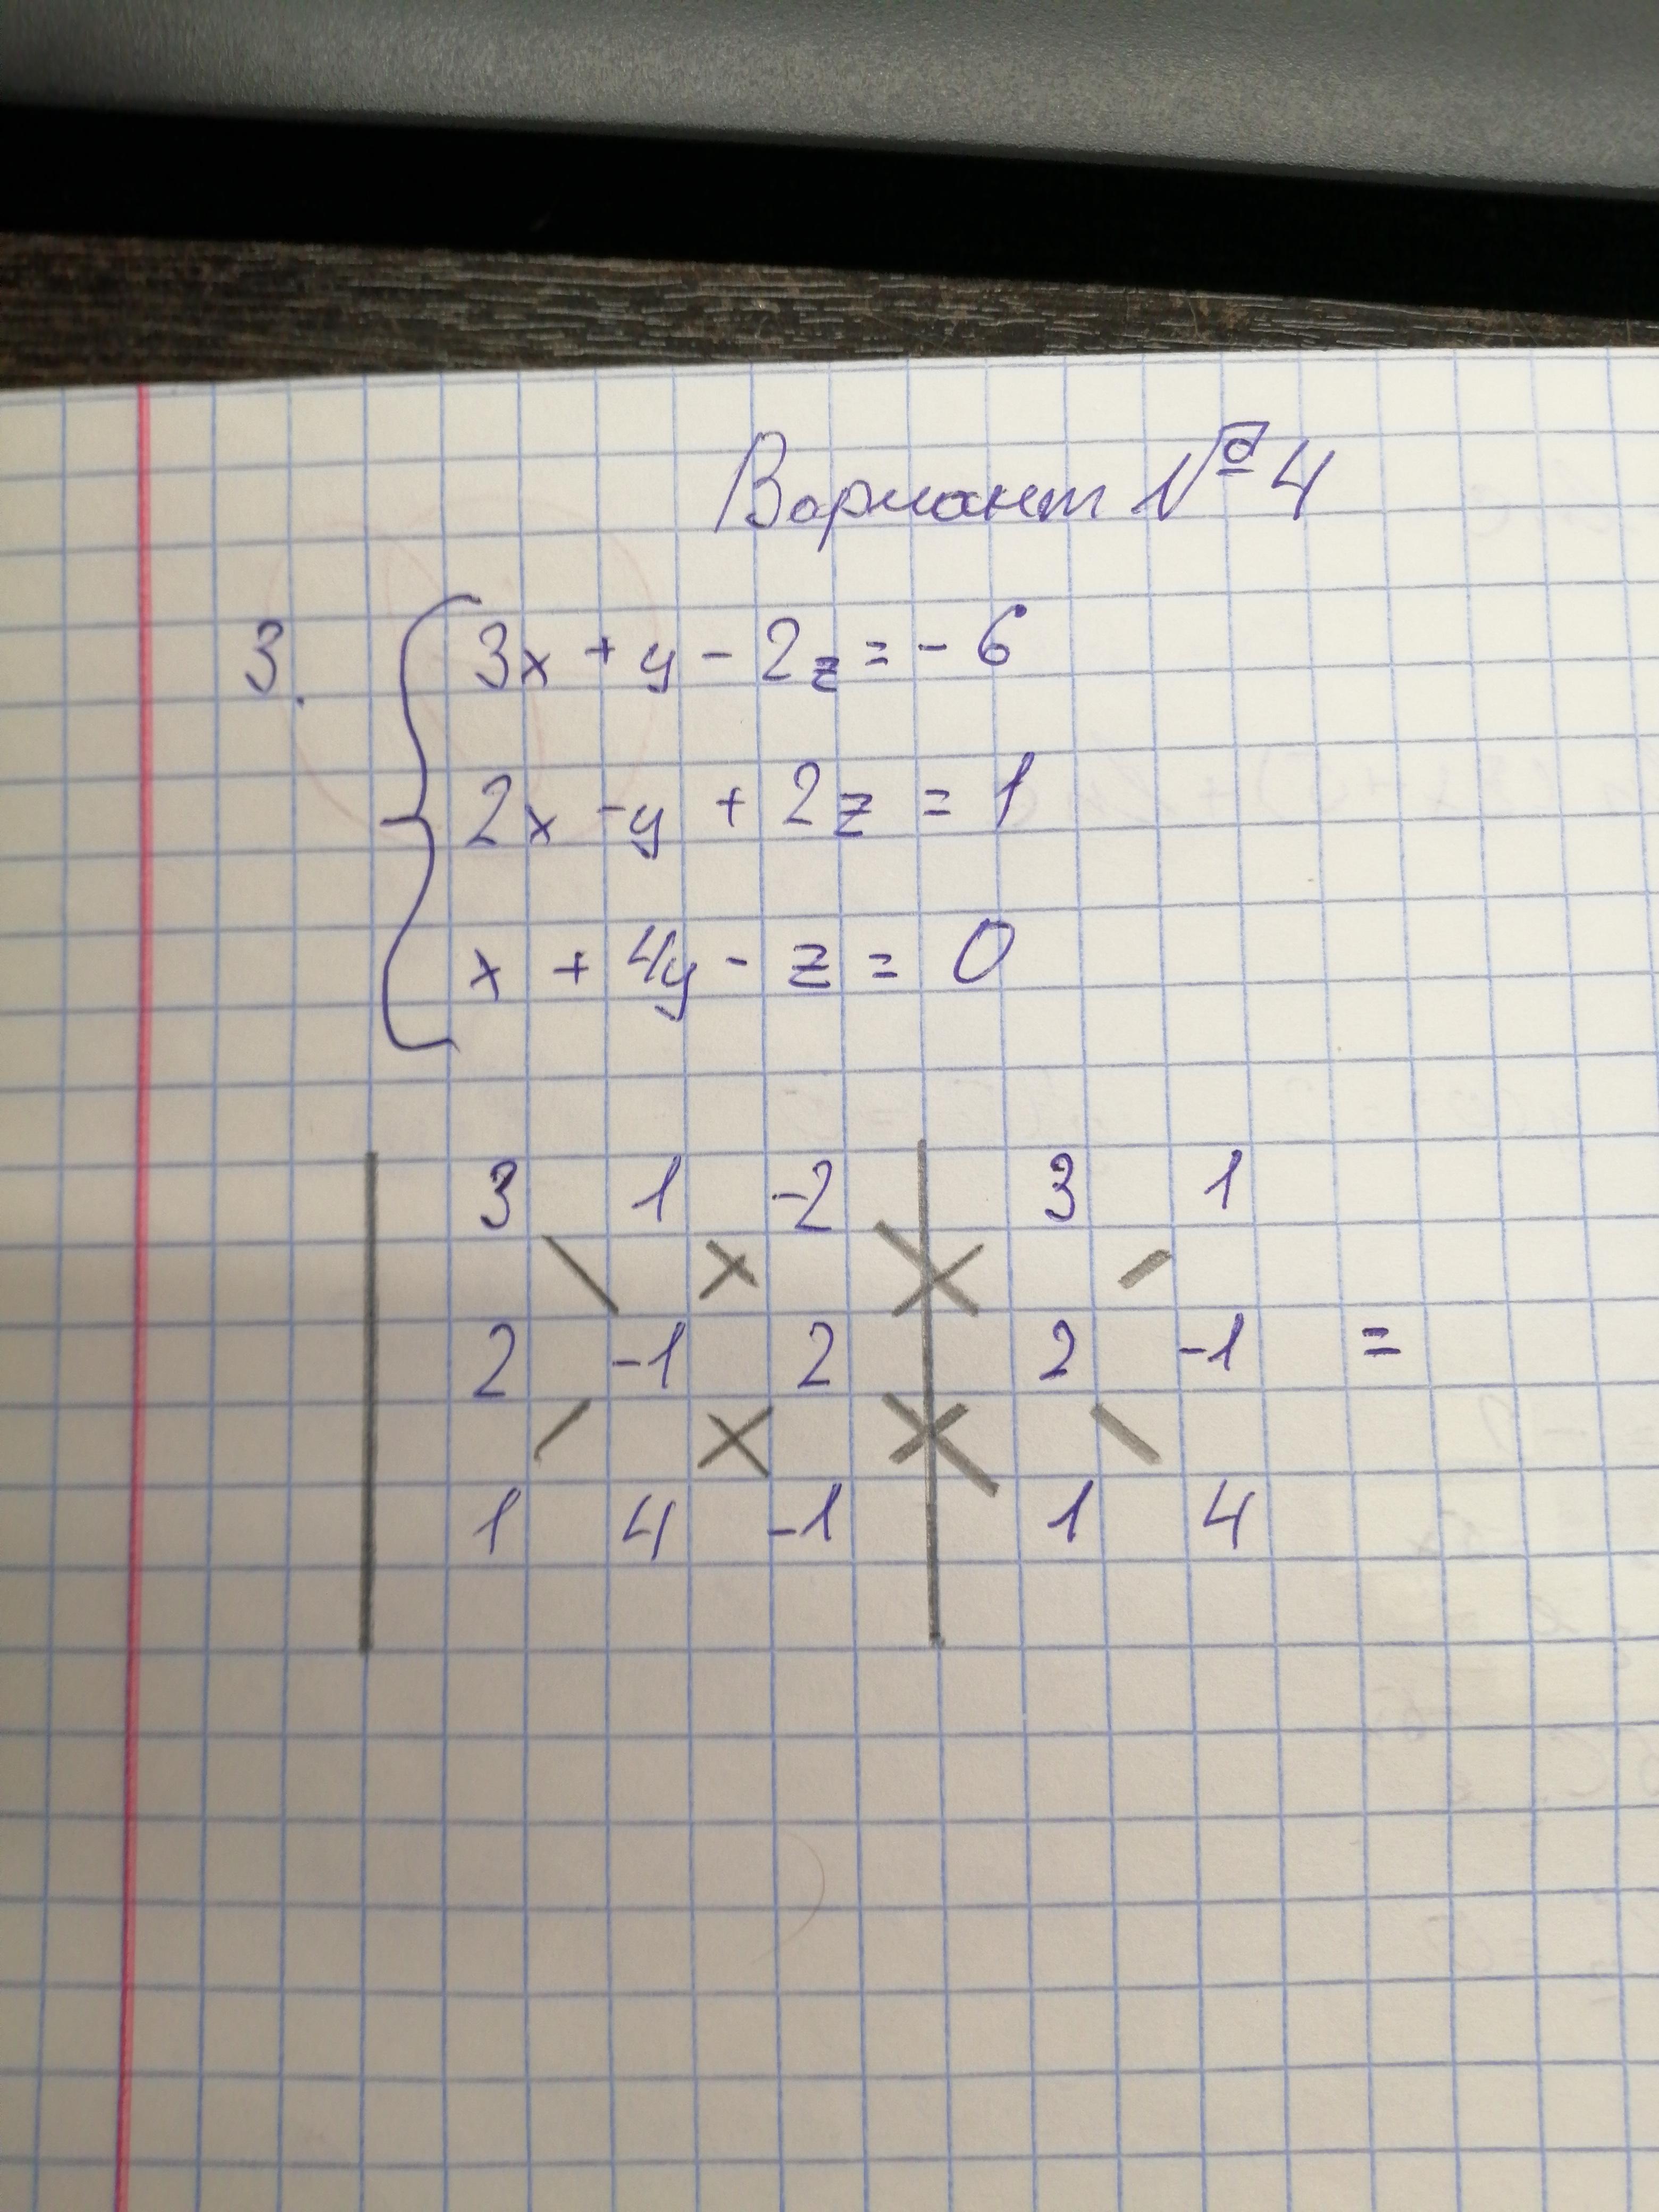 Вариант № 4
3. 3x + y - 2z = - 6
2x - y + 2z = 1
x + 4y - z = 0
3 1 -2 3 1
2 -1 2 2 -1 =
1 4 -1 1 4